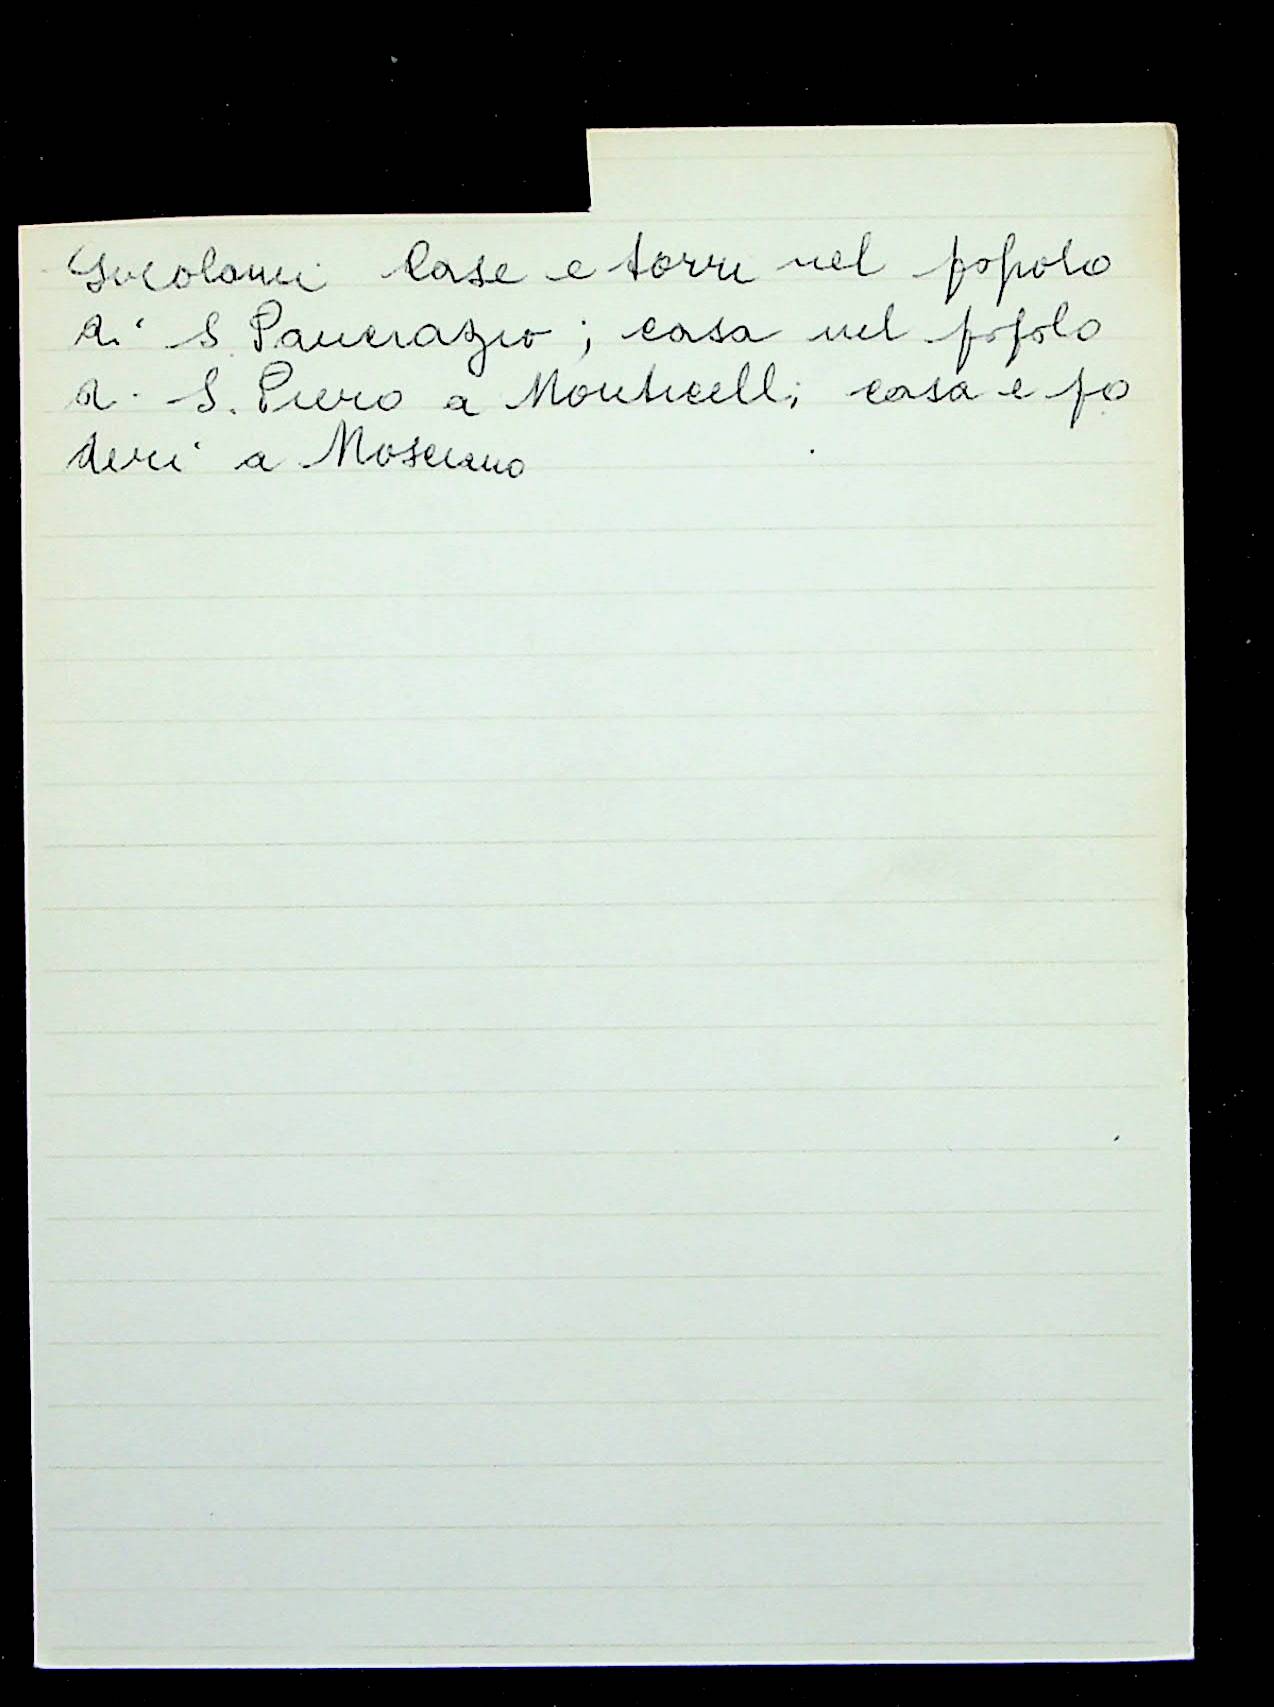 Girolami Case e torri nel popolo
di S. Pancrazio; casa nel popolo
di S. Piero a Monticelli; casa e po
deri a Mosciano